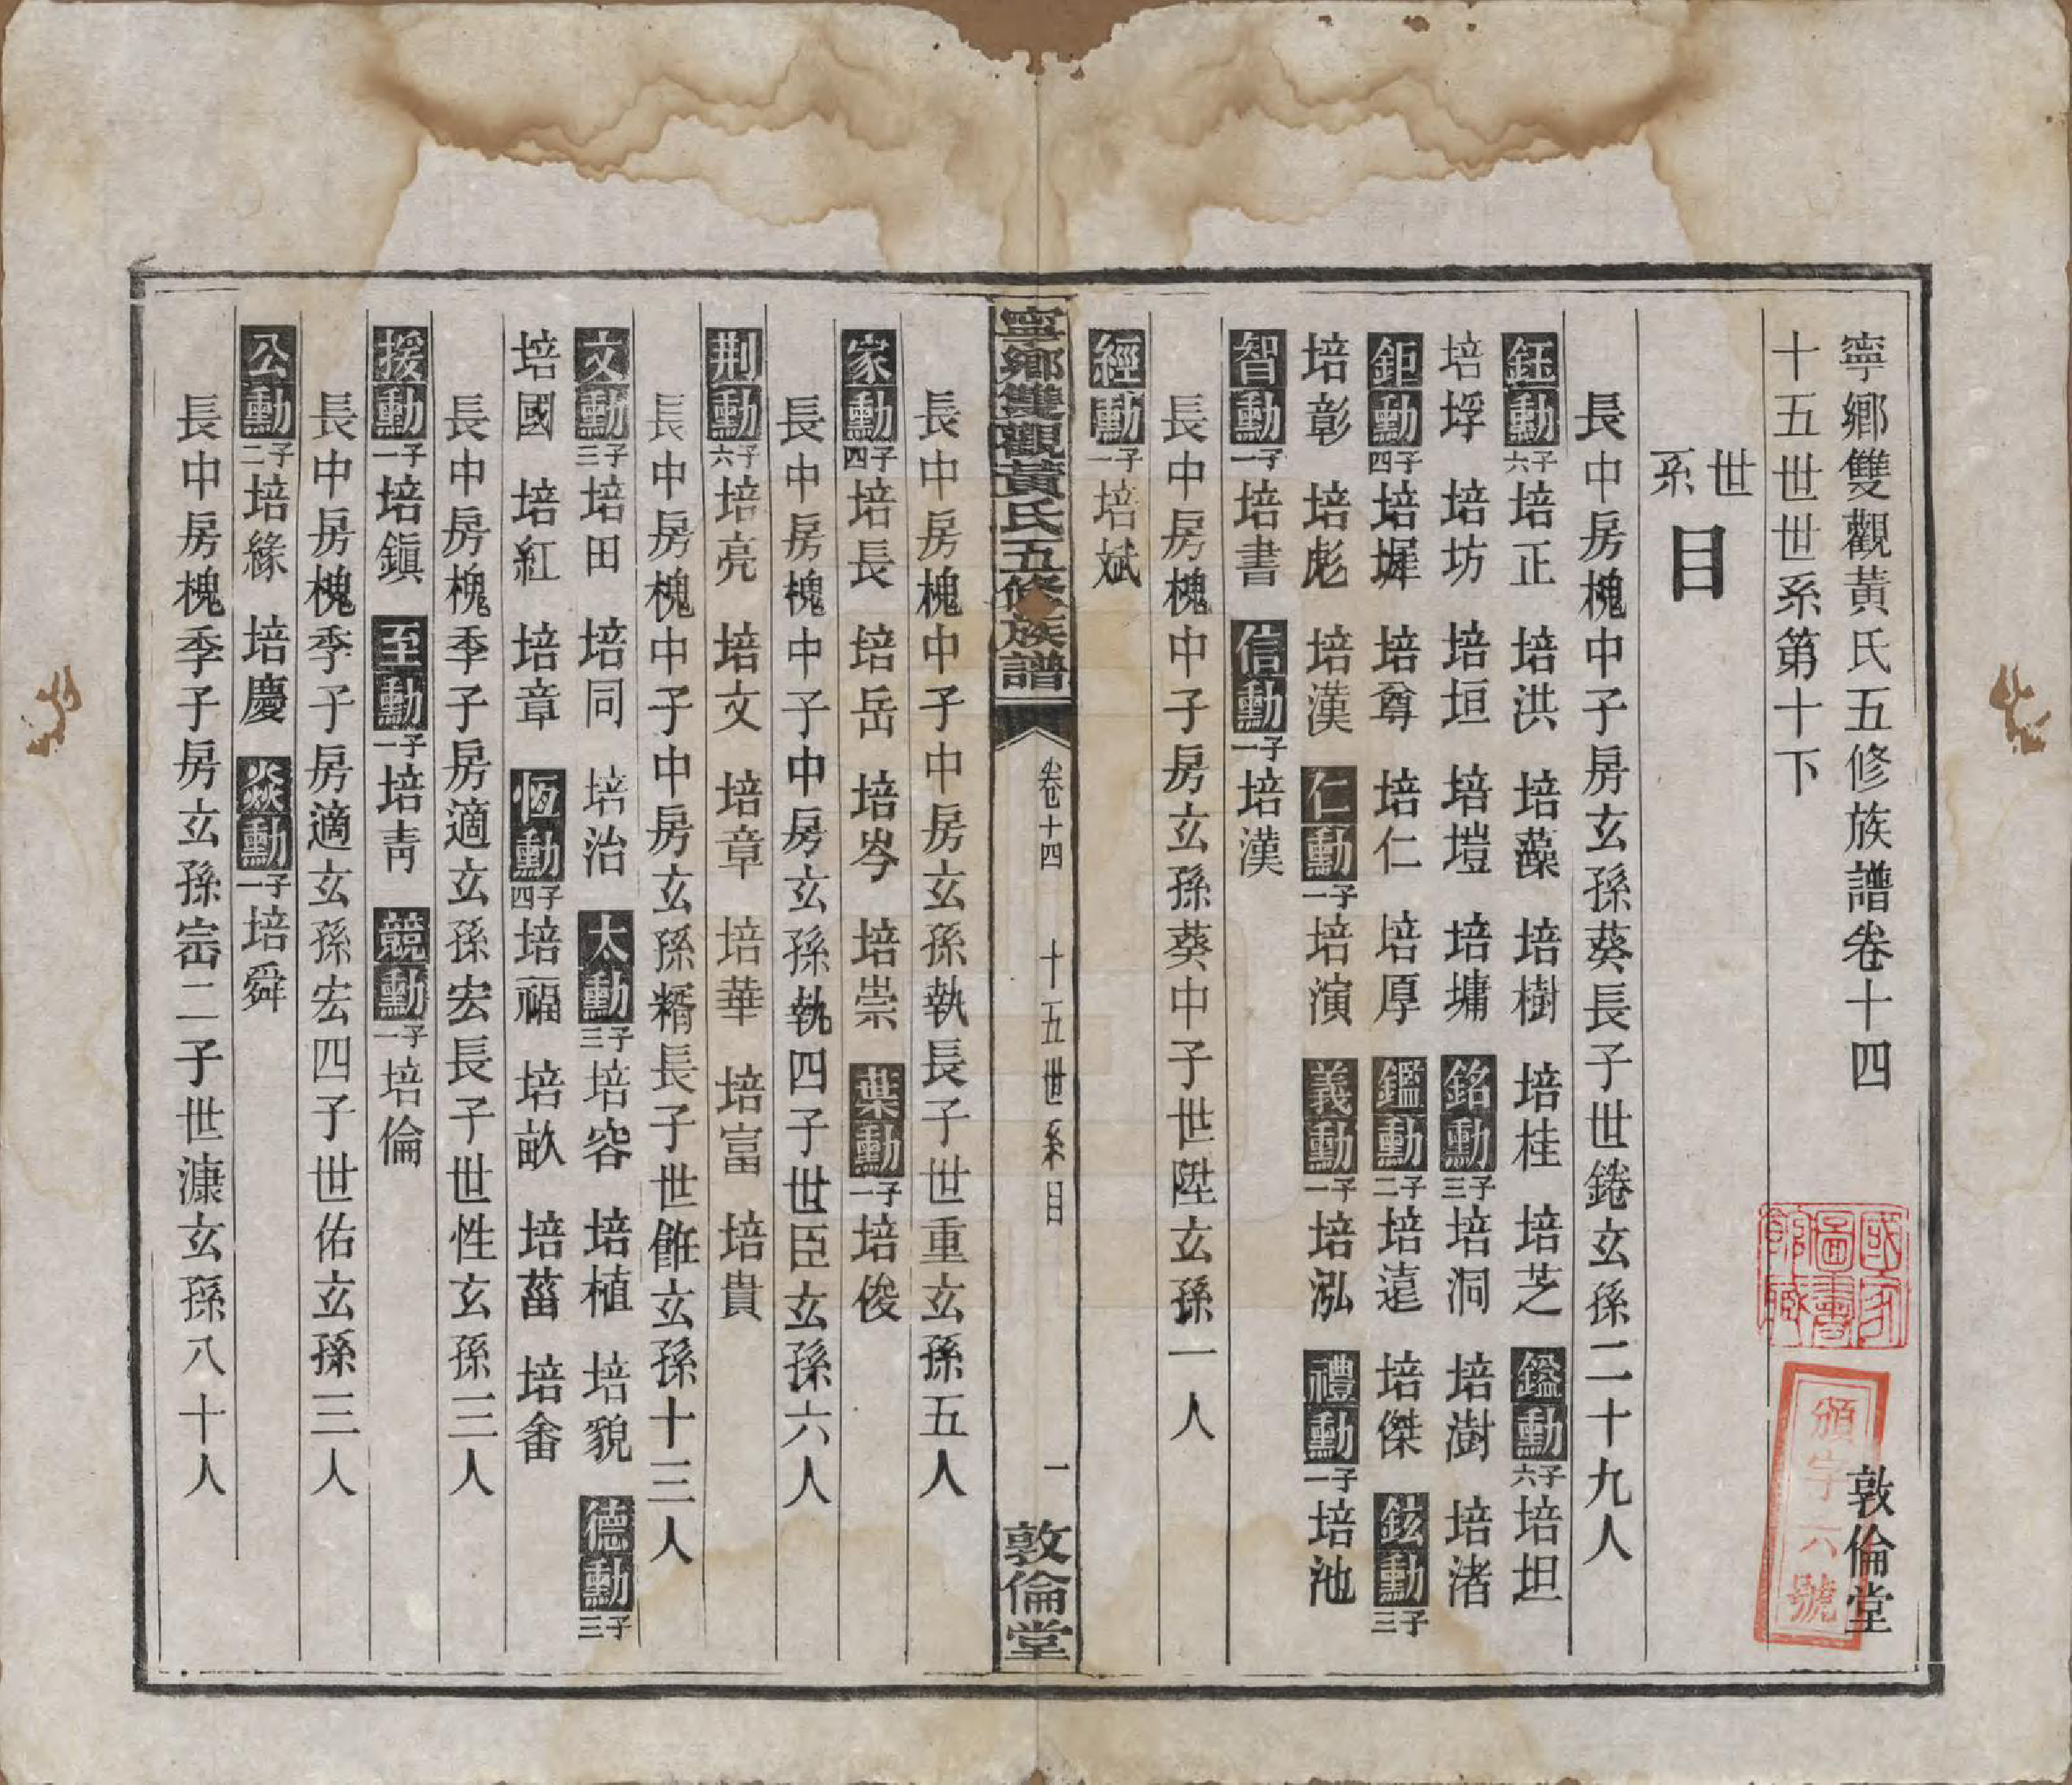 寧鄉雙觀黃氏五修族譜卷十四 敦倫堂
十五世世系第十下
世系目
長中房槐中子房玄孫葵長子世錈玄孫二十九人
鈺勳 六子 培正 培洪 培藻 培樹 培桂 培芝 鎰勳 六子 培坦
培垺 培坊 培垣 培塏 培墉 銘勳 三子 培洞 培澍 培渚
鉅勳 四子 培墀 培尊 培仁 培厚 鑑勳 二子 培遠 培傑 鉉勳 三子
培彰 培彪 培漢 仁勳 一子 培演 義勳 一子 培泓 禮勳 一子 培池
智勳 一子 培書 信勳 一子 培漢
長中房槐中子房玄孫葵中子世陞玄孫一人
經勳 一子 培斌
寧鄉雙觀黃氏五修族譜 卷十四 十五世系目 一 敦倫堂
長中房槐中子中房玄孫執長子世重玄孫五人
家勳 四子 培長 培岳 培岑 培崇 葉勳 一子 培俊
長中房槐中子中房玄孫執四子世臣玄孫六人
荆勳 六子 培亮 培文 培章 培華 培富 培貴
長中房槐中子中房玄孫糈長子世雒玄孫十三人
文勳 三子 培田 培同 培治 太勳 三子 培容 培植 培貌 德勳 三子
培國 培紅 培章 恆勳 四子 培福 培畝 培菑 培畬
長中房槐季子房適玄孫宏長子世性玄孫三人
援勳 一子 培鎮 至勳 一子 培靑 競勳 一子 培倫
長中房槐季子房適玄孫宏四子世佑玄孫三人
公勳 二子 培緣 培慶 焱勳 一子 培舜
長中房槐季子房玄孫崈二子世漮玄孫八十人
國家圖書館藏
頒字六號